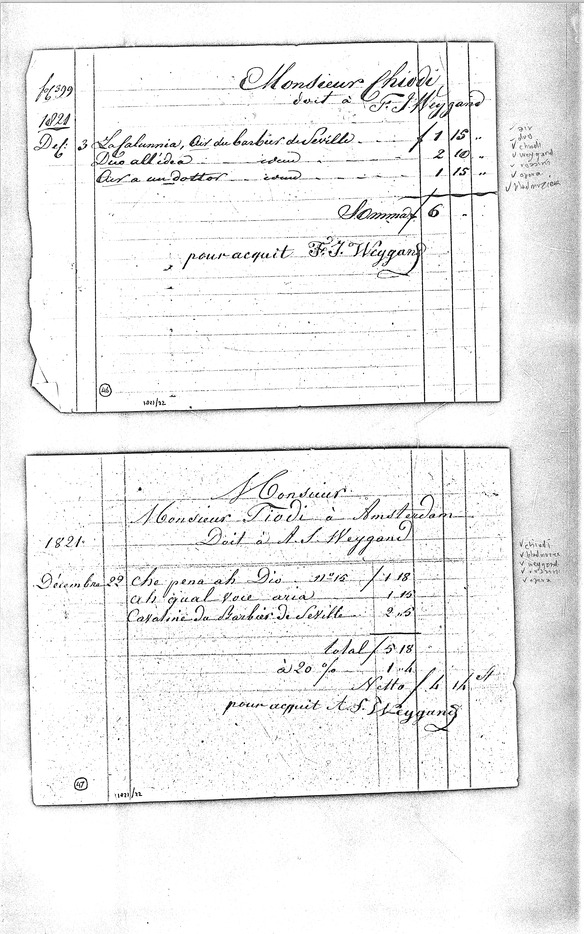 Monsieur Chiodi
doit à F. J. Weygand
1821
3 La Calunnia, air du barbier de Seville ƒ 1 15 "
Duo all'idea 2 10 "
Air a un dottor 1 15 "
Somma ƒ 6 "
pour acquit F. J. Weygand
46
1021/22
air
duo
chiodi
weygand
rossini
opera
bladmuziek
Monsieur
Monsieur Tiodi à Amsterdam
1821. Doit à A. S. Weygand
Décembre 22 che pena ah Dio. nº 15 ƒ 1 18
ah qual voce aria 1 15
Cavatine du Barbier de Seville 2 " 5
total ƒ 5 18
à 20 % 1 " 4
Netto ƒ 4 14 st
pour acquit A. S. Weygand
47
1021/22
chiodi
bladmuziek
weygand
rossini
opera